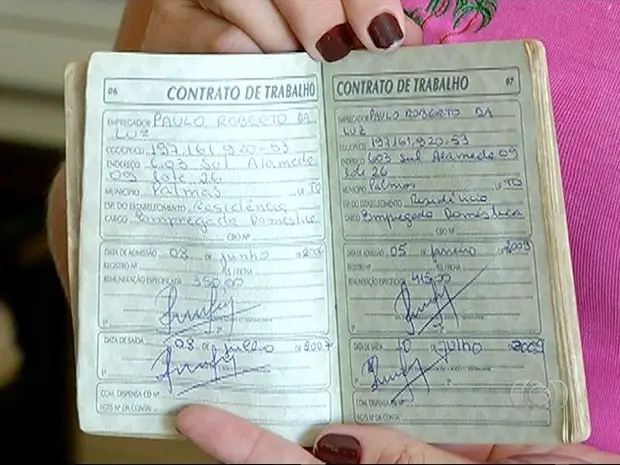 06 CONTRATO DE TRABALHO
EMPREGADOR PAULO ROBERTO DA
LUZ
CGC/CPF/CEI 197.161.920-53
ENDEREÇO 603 Sul Alameda
09 lote 26
MUNICÍPIO Palmas UF TO
ESP. DO ESTABELECIMENTO Residência
CARGO Empregada Domestica
CBO Nº
DATA DE ADMISSÃO 08 DE junho DE
REGISTRO Nº FLS./FICHA
REMUNERAÇÃO ESPECIFICADA 350,00
DATA DE SAÍDA 08 DE julho DE 2007
COM. DISPENSA CD Nº
FGTS Nº DA CONTA
07 CONTRATO DE TRABALHO
EMPREGADOR PAULO ROBERTO DA
LUZ
CGC/CPF/CEI 197.161.920-53
ENDEREÇO 603 Sul Alameda 09
lote 26
MUNICÍPIO Palmas UF TO
ESP. DO ESTABELECIMENTO Residência
CARGO Empregada Doméstica
CBO Nº
DATA DE ADMISSÃO 05 DE janeiro DE 2009
REGISTRO Nº FLS./FICHA
REMUNERAÇÃO ESPECIFICADA 415,00
DATA DE SAÍDA 10 DE julho DE 2009
COM. DISPENSA CD Nº
FGTS Nº DA CONTA